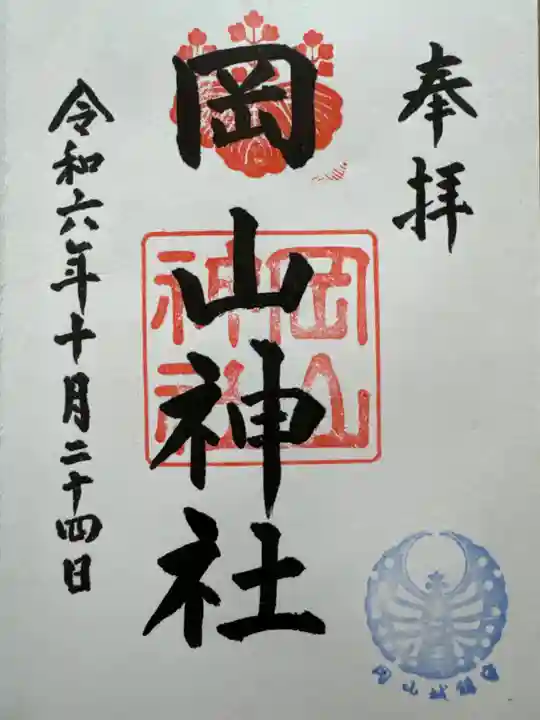 奉拝
岡山神社
岡山
神社
令和六年十月二十四日
岡山城鎮守